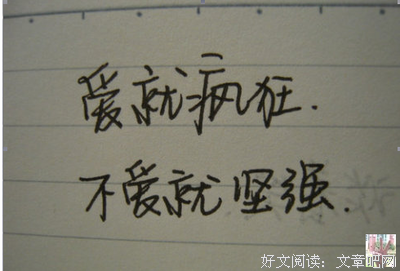 爱就疯狂.
不爱就坚强.
好文阅读：文章吧网